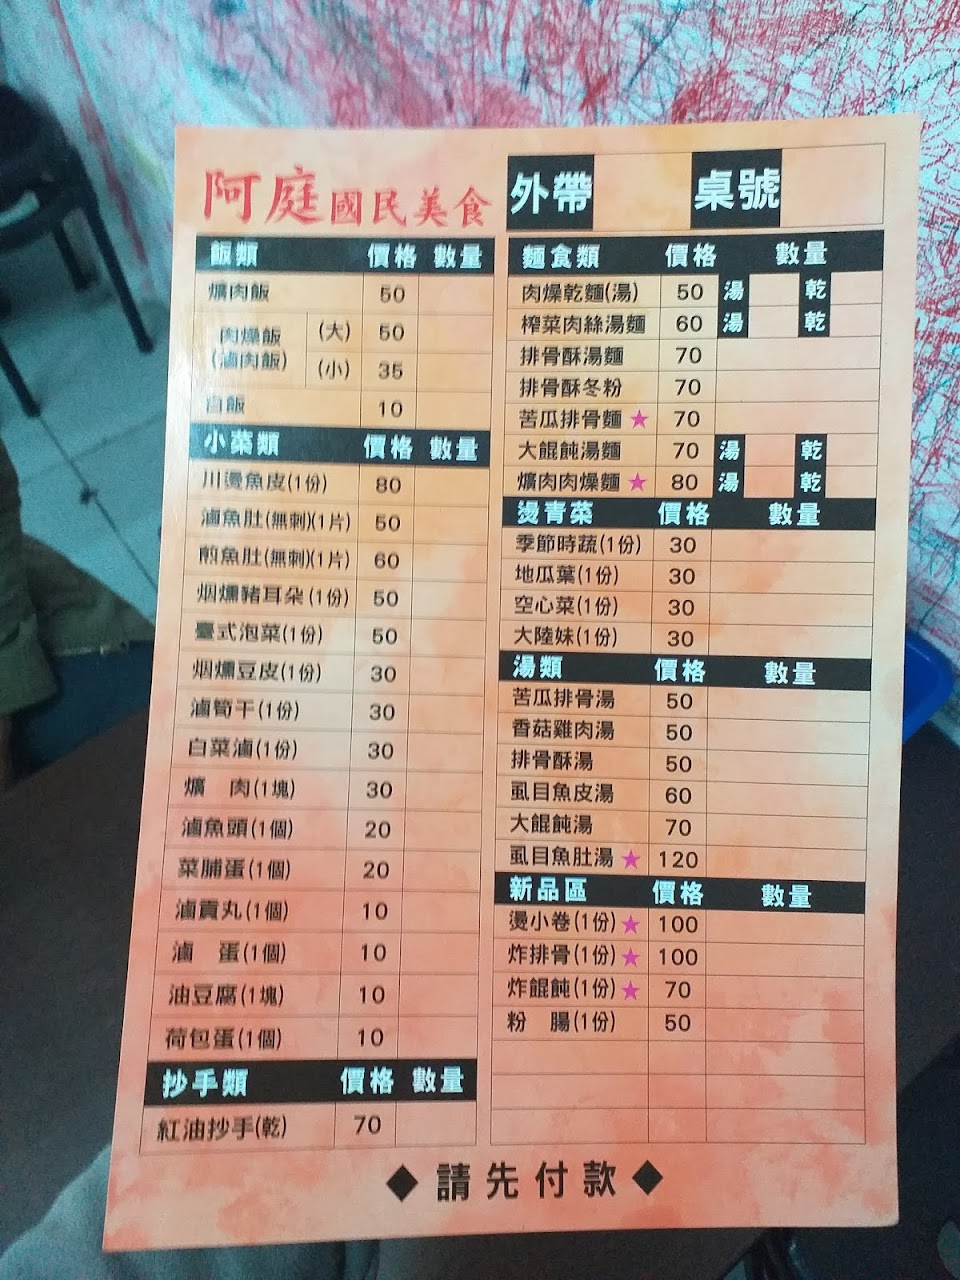 阿庭國民美食
外帶 桌號
飯類 價格 數量
爌肉飯 50
肉燥飯(滷肉飯) (大) 50
(小) 35
白飯 10
小菜類 價格 數量
川燙魚皮(1份) 80
滷魚肚(無刺)(1片) 50
煎魚肚(無刺)(1片) 60
烟燻豬耳朵(1份) 50
臺式泡菜(1份) 50
烟燻豆皮(1份) 30
滷筍干(1份) 30
白菜滷(1份) 30
爌 肉(1塊) 30
滷魚頭(1個) 20
菜脯蛋(1個) 20
滷貢丸(1個) 10
滷 蛋(1個) 10
油豆腐(1塊) 10
荷包蛋(1個) 10
抄手類 價格 數量
紅油抄手(乾) 70
麵食類 價格 數量
肉燥乾麵(湯) 50 湯 乾
榨菜肉絲湯麵 60 湯 乾
排骨酥湯麵 70
排骨酥冬粉 70
苦瓜排骨麵★ 70
大餛飩湯麵 70 湯 乾
爌肉肉燥麵★ 80 湯 乾
燙青菜 價格 數量
季節時蔬(1份) 30
地瓜葉(1份) 30
空心菜(1份) 30
大陸妹(1份) 30
湯類 價格 數量
苦瓜排骨湯 50
香菇雞肉湯 50
排骨酥湯 50
虱目魚皮湯 60
大餛飩湯 70
虱目魚肚湯★ 120
新品區 價格 數量
燙小卷(1份)★ 100
炸排骨(1份)★ 100
炸餛飩(1份)★ 70
粉 腸(1份) 50
◆ 請先付款 ◆